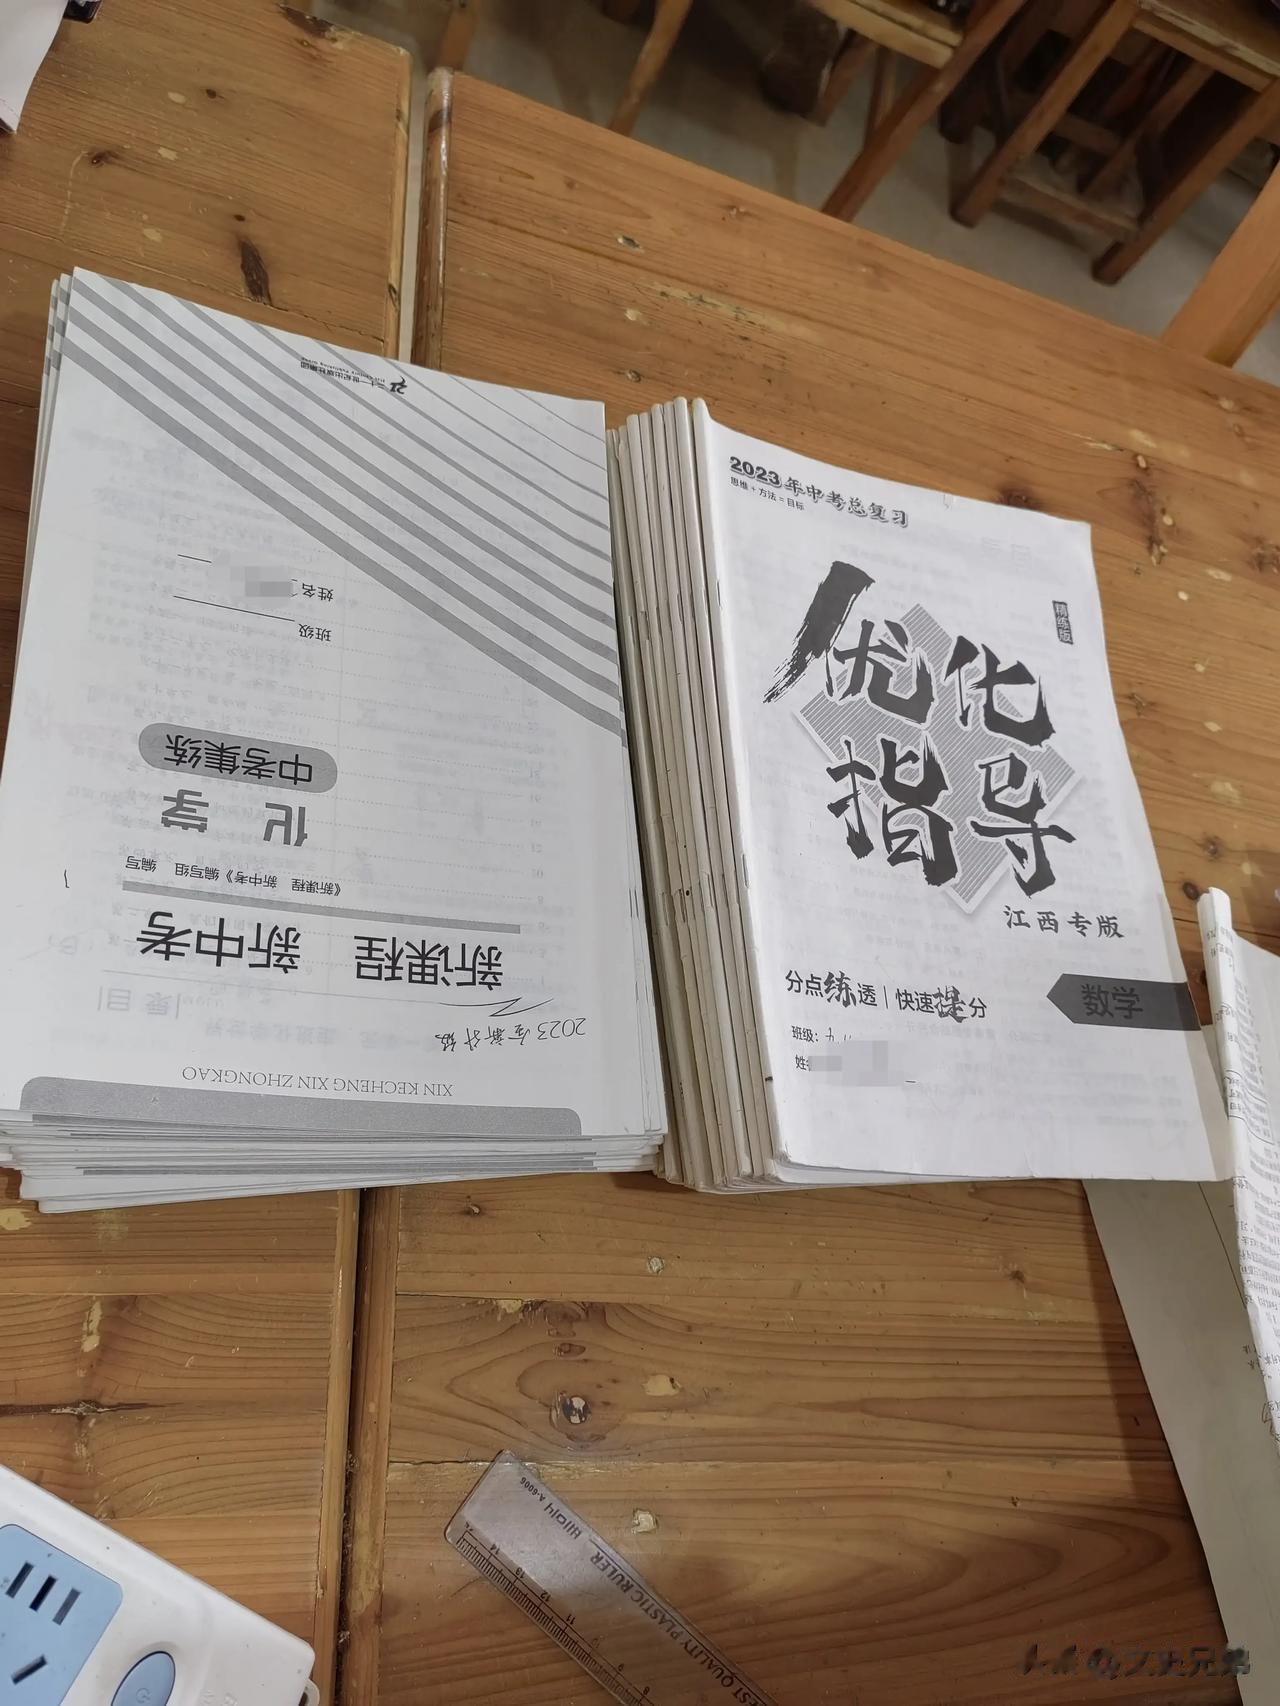 XIN KECHENG XIN ZHONGKAO
2023全新升级
新课程 新中考
《新课程 新中考》编写组 编写
化学
中考集练
班级
姓名
二十一世纪出版社集团
2023年中考总复习
思维+方法=目标
精练版
优化
指导
江西专版
分点练透|快速提分
数学
班级:
A-6006
BEST QUALITY PLASTIC RULER
14 13 12 11
@文史兄弟